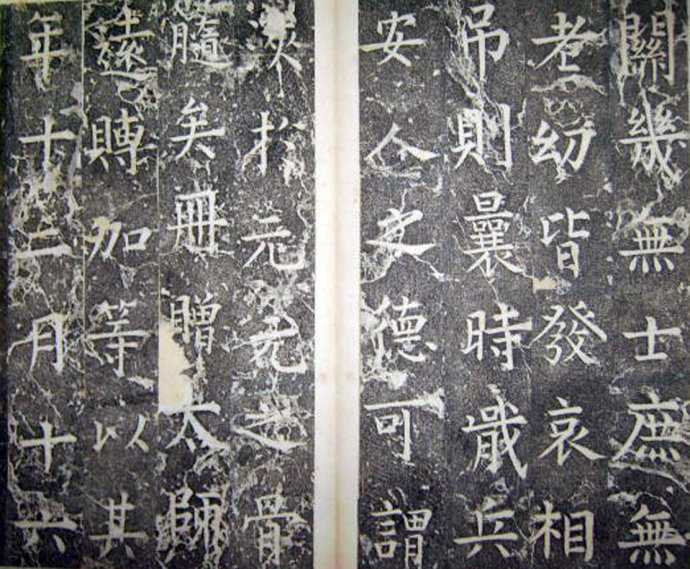 關畿無士庶無
老幼皆發哀相
吊則曩時戢兵
安人之德可謂
深於元元之骨
髓矣冊贈太師
襚賻加等以其
年十二月十六